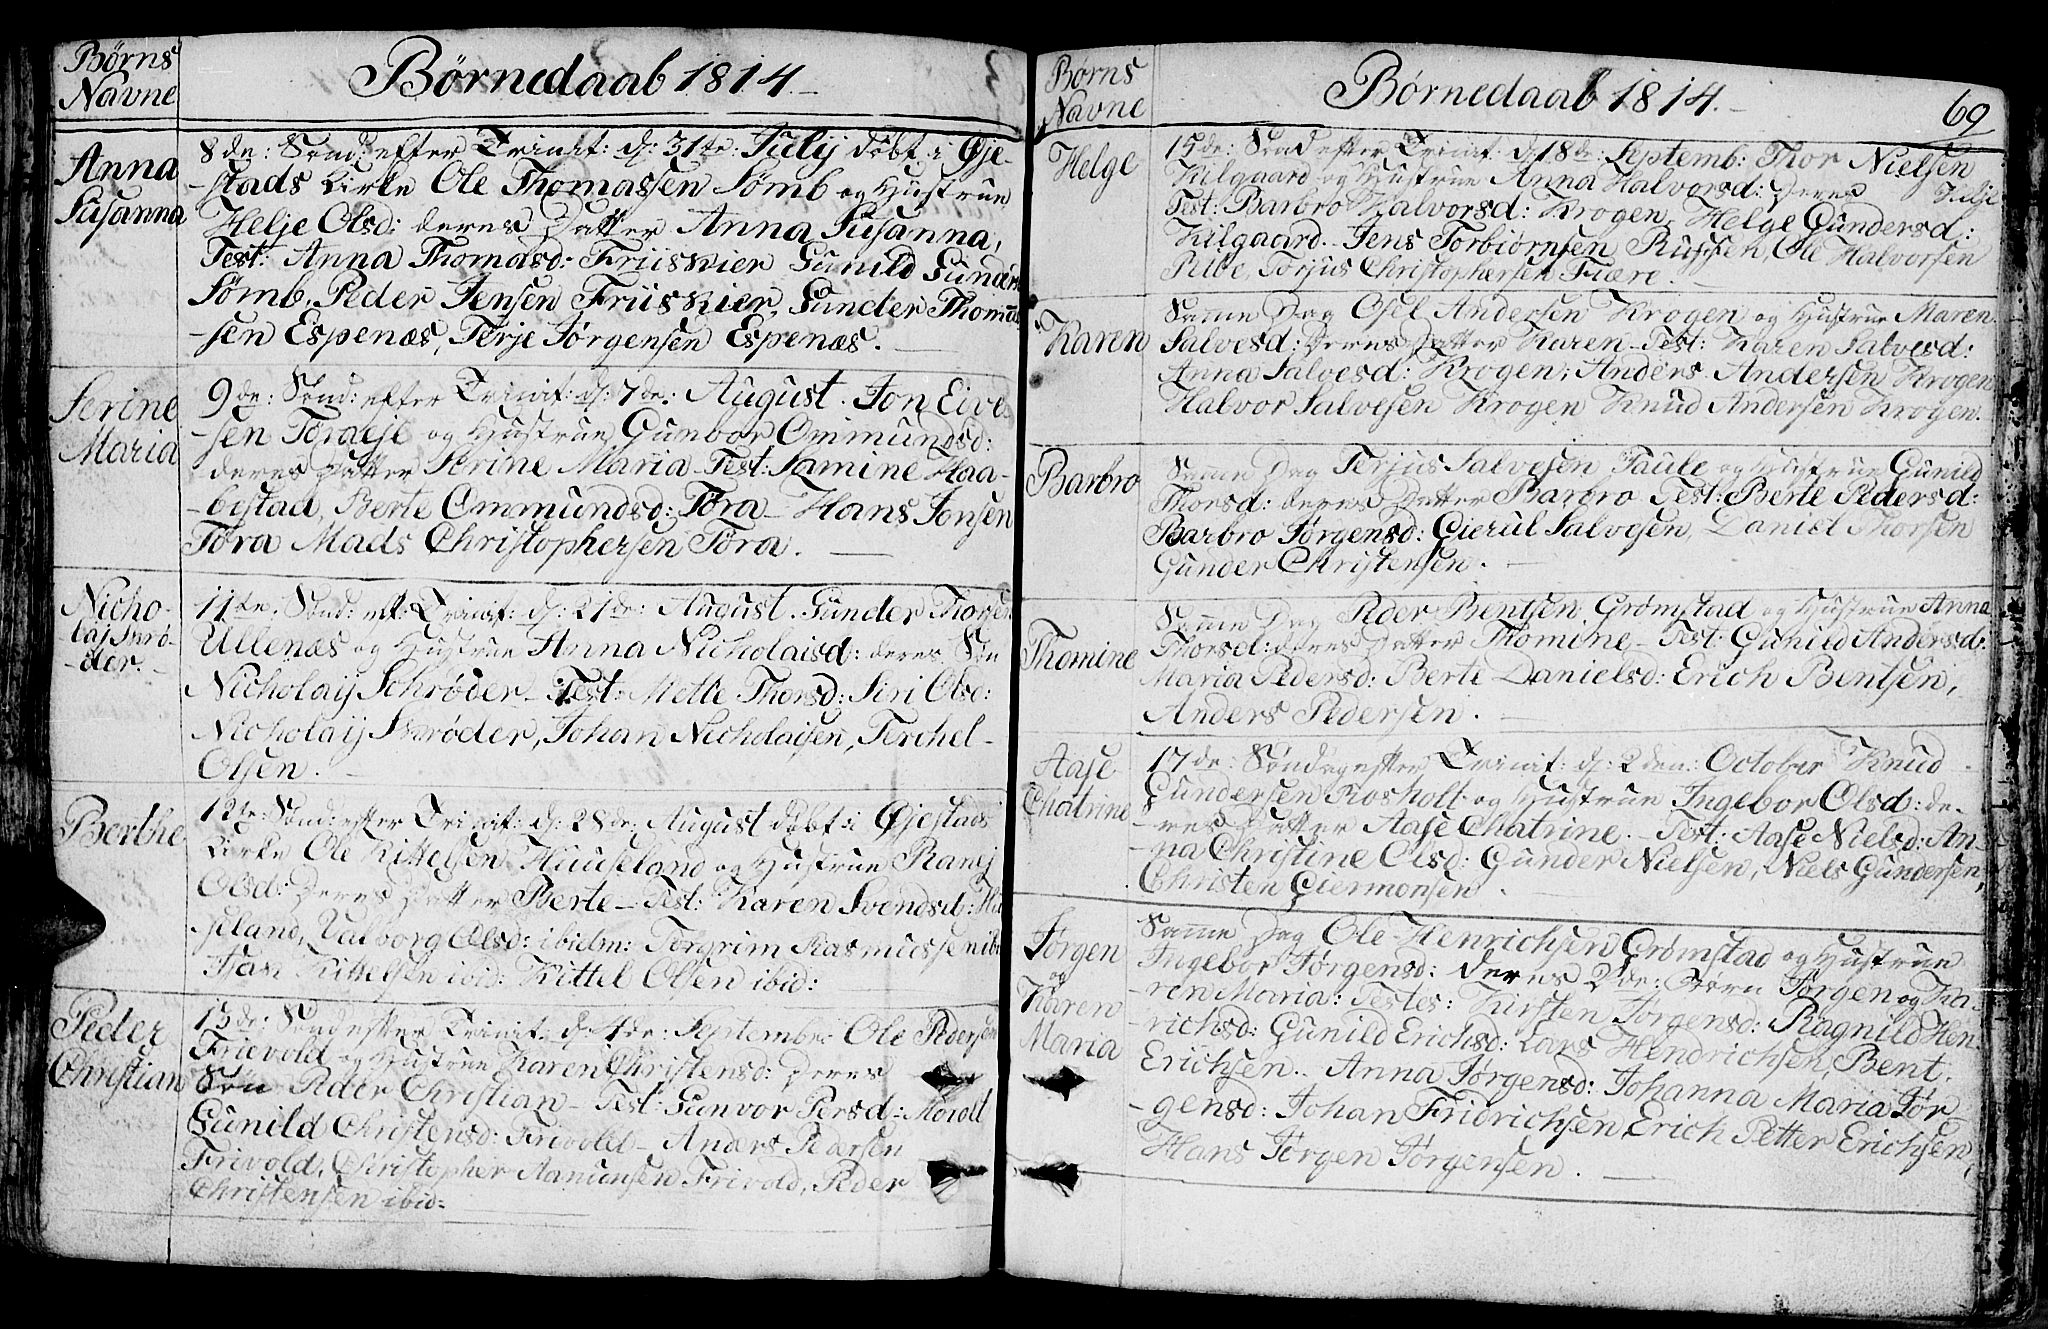 Børns
Navne
Børnedaab 1814.
Anna
Susanna
8de: Sønd: efter Trinit: d: 31te: Julij døbt i Øje-
-stads Kirke Ole Thomassen Sømb og Hustrue
Helje Olsd: deres Datter Anna Susanna,
Test: Anna Thomasd: Friiskier Gunild Gunders
Sømb, Peder Jensen Friiskier, Gunder Thomas
-sen Espenæs, Terje Jørgensen Espenæs.
Serine
Maria
9de: Sønd: efter Trinit: d: 7de: August. Jon Eive
-sen Töraese og Hustrue Gunvor Ommundsd:
deres Datter Serine Maria Test: Lamine Haa-
-bestad, Berte Ommundsd: Töra Hans Jonsen
Töra Mads Christophersen Töra.
Nicho-
laj Skrø-
-der.
11te: Sønd: eft: Trinit: d: 21de: August. Gunder Thorsen
Ullenæs og Hustrue Anna Nicholaisd: deres Søn
Nicholaij Schrøder Test: Mette Thorsd: Siri Olsd:
Nicholaij Skrøder, Johan Nicholaisen, Terchel
Olsen.
Berthe
12te: Sønd: efter Trinit: d: 28de: August døbt i Øjestads
Kirke Ole Kittelsen Huuseland og Hustrue Ranej
Olsd: Deres Datter Berte Test: Karen Svendsd: Hu
seland, Valborg Olsd: ibidm: Torgrim Rasmussen ibi
Kittelsen ibid: Kittel Olsen ibid:
Peder
Christian
13de: Sønd efter Trinit: d: 4de: Septembr: Ole Pedersen
Frievold og Hustrue Karen Christensd: Deres
Søn Peder Christian Test: Gunvor Persd: Morolt
Gunild Christensd: Frivold Anders Pedersen
Frivold, Christopher Aanunsen Frivold, Peder
Christensen ibid:
Børns
Navne
Børnedaab 1814.
69
Helge
15de: Sønd efter Trinit: d 18de: Septemb: Thor Nielsen
Kilgaard og Hustrue Anna Halvorsd: Deres Helje
Test: Barbro Halvorsd: Krogen, Helge Gundersd:
Kilgaard. Jens Torbiørnsen Russen, Ole Halvorsen
Ribe, Torjus Christophersen Fiære.
Karen
Samme Dag Osel Andersen Krogen og Hustrue Maren
Salvesd: Deres Datter Karen Test: Karen Salvesd:
Anna Salvesd: Krogen, Anders Andersen Krogen
Halvor Salvesen Krogen Knud Andersen Krogen.
Barbro
Samme Dag Terjus Salvesen Taule og Hustrue Gunild
Thorsd: deres Datter Barbro Test: Berte Pedersd:
Barbro Jørgensd: Gierul Salvesen, Daniel Thorsen
Gunder Christensen.
Thomine
Samme Dag Peder Bentsen Grømstad og Hustrue Anna
Thorsd: deres Datter Thomine Test: Gunild Andersd:
Maria Pedersd: Berte Danielsd: Erich Bentsen,
Anders Pedersen.
Aase
Chatrine
17de: Søndag efter Trinit: d: 2den: October Knud
Gundersen Rosholt og Hustrue Ingebor Olsd: de-
-res Datter Aase Chatrine. Test: Aase Nielsd: An-
-na Christine Olsd: Gunder Nielsen, Niels Gundersen,
Christen Giermonsen.
Jørgen
og
Karen
Maria
Samme Dag Ole Henrichsen Grømstad og Hustrue
Ingebor Jørgensd: deres 2de: Børn Jørgen og Ka-
-ren Maria: Testes: Kirsten Jørgensd: Ragnild Hen-
-richsd: Gunild Erichsd: Lars Hendrichsen, Bent
Erichsen. Anna Jørgensd: Johanna Maria Jør
-gensd: Johan Fridrichsen, Erich Petter Erichsen,
Hans Jørgen Jørgensen.